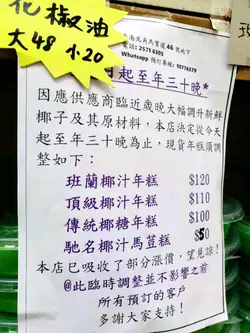 花椒油
大48 小20
港北角馬寶道46號地下
電話: 2571 6305
Whatsapp 預訂專線: 90776379
日起至年三十晚"
因應供應商臨近歲晚大幅調升新鮮
椰子及其原材料，本店決定從今天
起至年三十晚為止，現貨年糕須調
整如下：
班蘭椰汁年糕 $120
頂級椰汁年糕 $110
傳統椰糖年糕 $100
馳名椰汁馬荳糕 $50
本店已吸收了部分漲價，望見諒！
@此臨時調整並不影響之前
所有預訂的客戶
多謝大家支持！